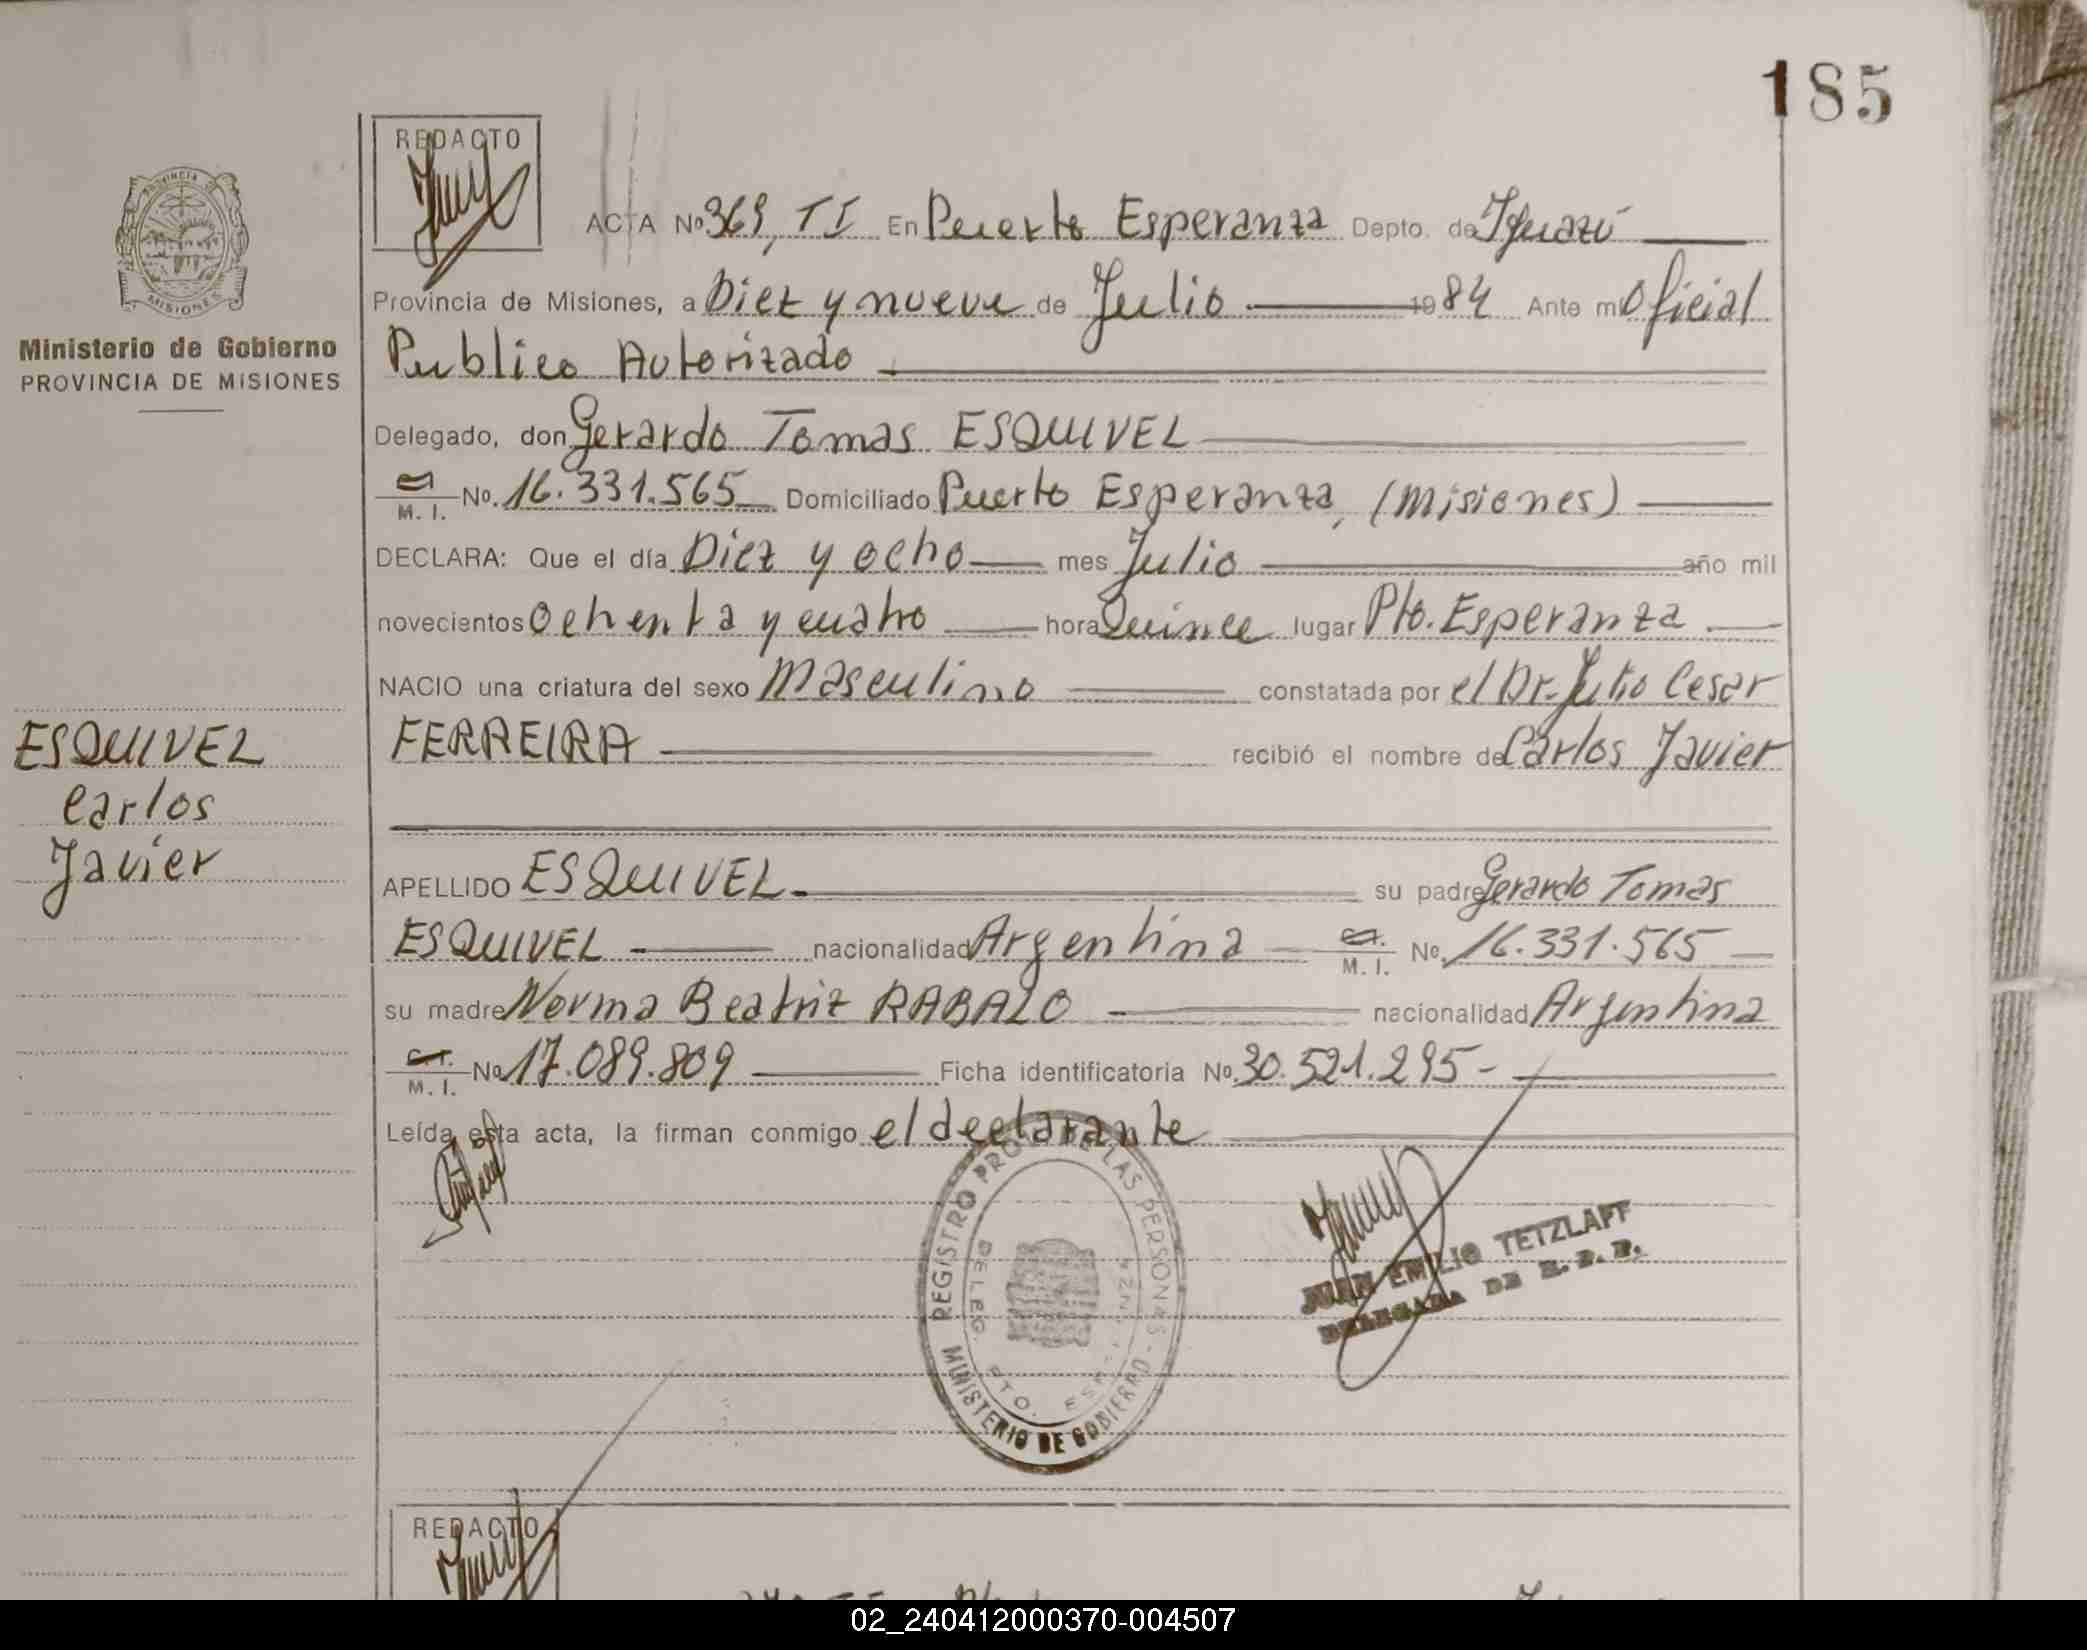 185
REDACTO
ACTA No 369, TI En Puerto Esperanza Depto. de Iguazú
Provincia de Misiones, a Diez y nueve de Julio 1984 Ante mi Oficial
Publico Autorizado
Delegado, don Gerardo Tomas ESQUIVEL
M. I. No. 16.331.565 Domiciliado Puerto Esperanza, (Misiones)
DECLARA: Que el día Diez y ocho mes Julio año mil
novecientos ochenta y cuatro hora Quince lugar Pto. Esperanza
NACIO una criatura del sexo Masculino constatada por el Dr. Julio Cesar
FERREIRA recibió el nombre de Carlos Javier
APELLIDO ESQUIVEL su padre Gerardo Tomas
ESQUIVEL nacionalidad Argentina C.I. M. I. No. 16.331.565
su madre Norma Beatriz RABALO nacionalidad Argentina
C.I. M. I. No 17.089.809 Ficha identificatoria No. 30.521.295-
Leída esta acta, la firman conmigo el declarante
PROVINCIA DE MISIONES
Ministerio de Gobierno
PROVINCIA DE MISIONES
ESQUIVEL
Carlos
Javier
REGISTRO PROV. DE LAS PERSONAS - MINISTERIO DE GOBIERNO
DELEG. PTO.
JUAN EMILIO TETZLAFF
DE R. P. P.
REDACTO
02_240412000370-004507